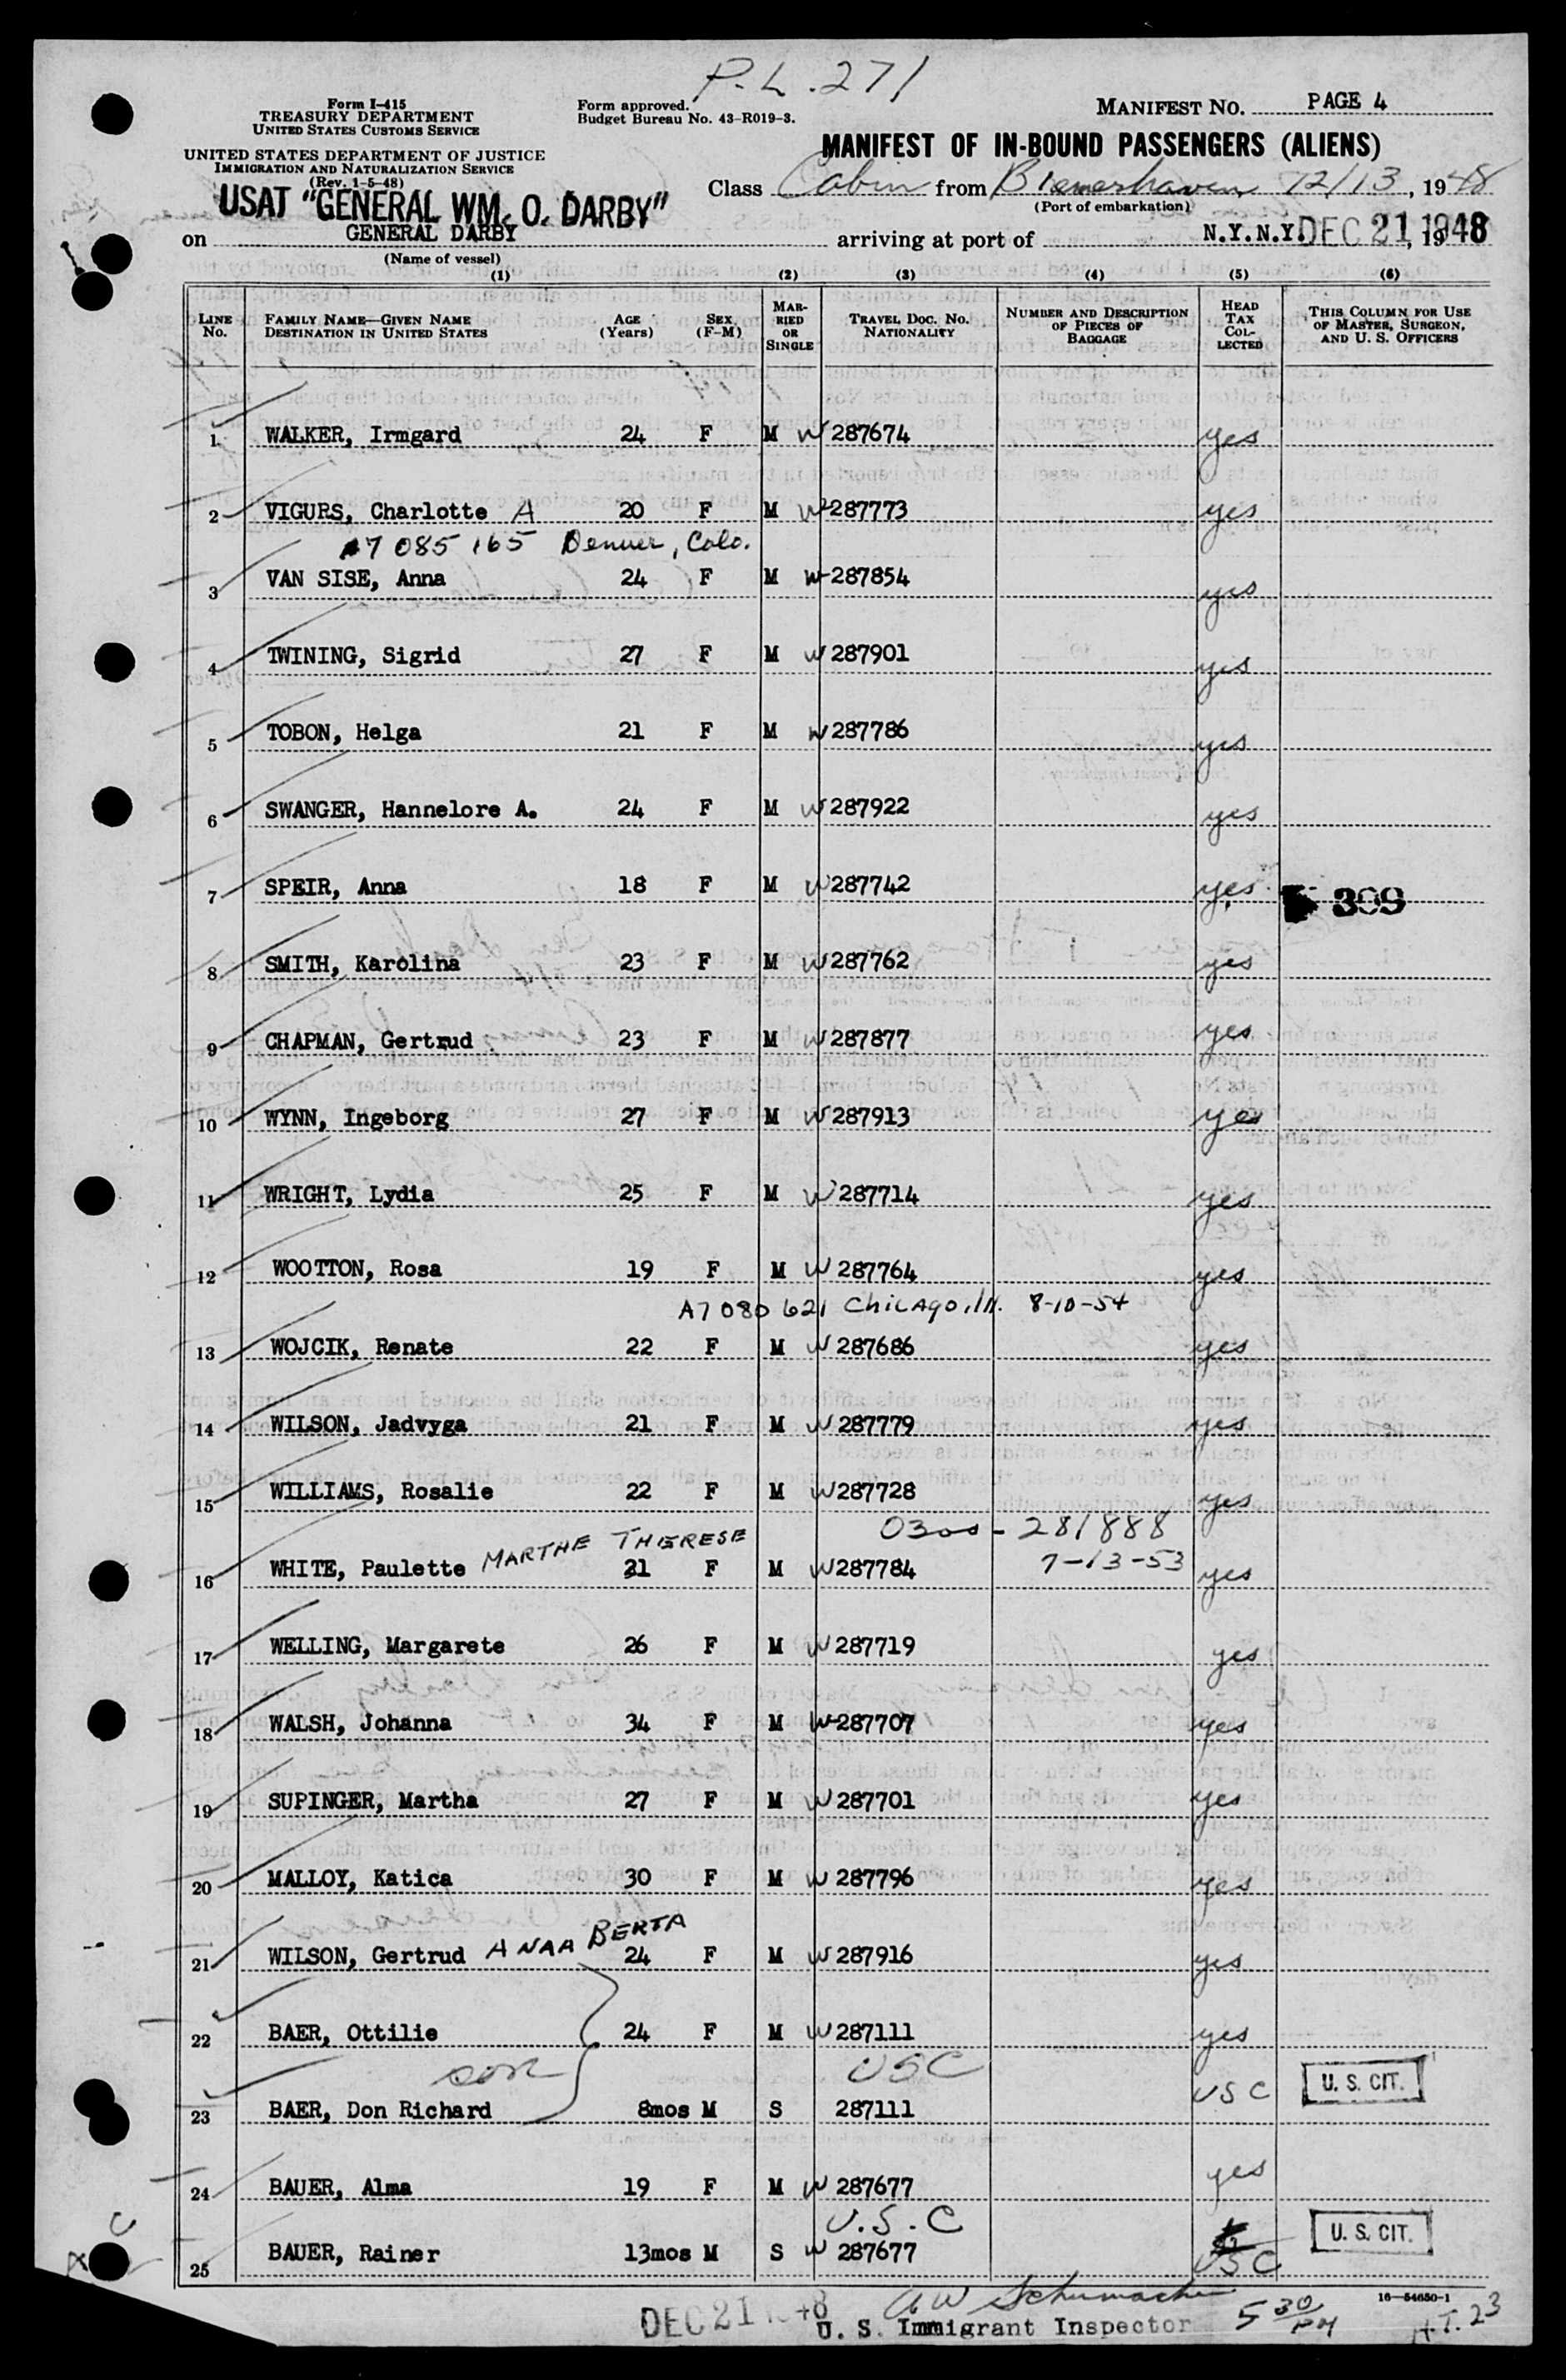 P.L. 271
Form I-415
TREASURY DEPARTMENT
UNITED STATES CUSTOMS SERVICE
UNITED STATES DEPARTMENT OF JUSTICE
IMMIGRATION AND NATURALIZATION SERVICE
(Rev. 1-5-48)
Form approved.
Budget Bureau No. 43-R019-3.
MANIFEST NO. PAGE 4
MANIFEST OF IN-BOUND PASSENGERS (ALIENS)
Class Cabin from Bremerhaven 12/13, 1948
(Port of embarkation)
USAT "GENERAL WM. O. DARBY"
on GENERAL DARBY arriving at port of N.Y.N.Y. DEC 21 1948
(Name of vessel)
(1) (2) (3) (4) (5) (6)
LINE No. FAMILY NAME—GIVEN NAME DESTINATION IN UNITED STATES AGE (Years) SEX (F-M) MARRIED OR SINGLE TRAVEL DOC. NO. NATIONALITY NUMBER AND DESCRIPTION OF PIECES OF BAGGAGE HEAD TAX COLLECTED THIS COLUMN FOR USE OF MASTER, SURGEON, AND U. S. OFFICERS
1 WALKER, Irmgard 24 F M W 287674 yes
2 VIGURS, Charlotte A 20 F M W 287773 yes
A7 085 165 Denver, Colo.
3 VAN SISE, Anna 24 F M W 287854 yes
4 TWINING, Sigrid 27 F M W 287901 yes
5 TOBON, Helga 21 F M W 287786 yes
6 SWANGER, Hannelore A. 24 F M W 287922 yes
7 SPEIR, Anna 18 F M W 287742 yes 309
8 SMITH, Karolina 23 F M W 287762 yes
9 CHAPMAN, Gertrud 23 F M W 287877 yes
10 WYNN, Ingeborg 27 F M W 287913 yes
11 WRIGHT, Lydia 25 F M W 287714 yes
12 WOOTTON, Rosa 19 F M W 287764 yes
A7 080 621 Chicago, Ill. 8-10-54
13 WOJCIK, Renate 22 F M W 287686 yes
14 WILSON, Jadvyga 21 F M W 287779 yes
15 WILLIAMS, Rosalie 22 F M W 287728 yes
0300-281888
16 WHITE, Paulette MARTHE THERESE 21 F M W 287784 7-13-53 yes
17 WELLING, Margarete 26 F M W 287719 yes
18 WALSH, Johanna 34 F M W 287707 yes
19 SUPINGER, Martha 27 F M W 287701 yes
20 MALLOY, Katica 30 F M W 287796 yes
21 WILSON, Gertrud ANAA BERTA 24 F M W 287916 yes
22 BAER, Ottilie 24 F M W 287111 yes
son USC
23 BAER, Don Richard 8mos M S 287111 USC U. S. CIT.
24 BAUER, Alma 19 F M W 287677 yes
U.S.C
25 BAUER, Rainer 13mos M S W 287677 USC U. S. CIT.
DEC 21 1948 AW Schumacher 16—54650-1
U. S. Immigrant Inspector 5 30 PM H.T. 23